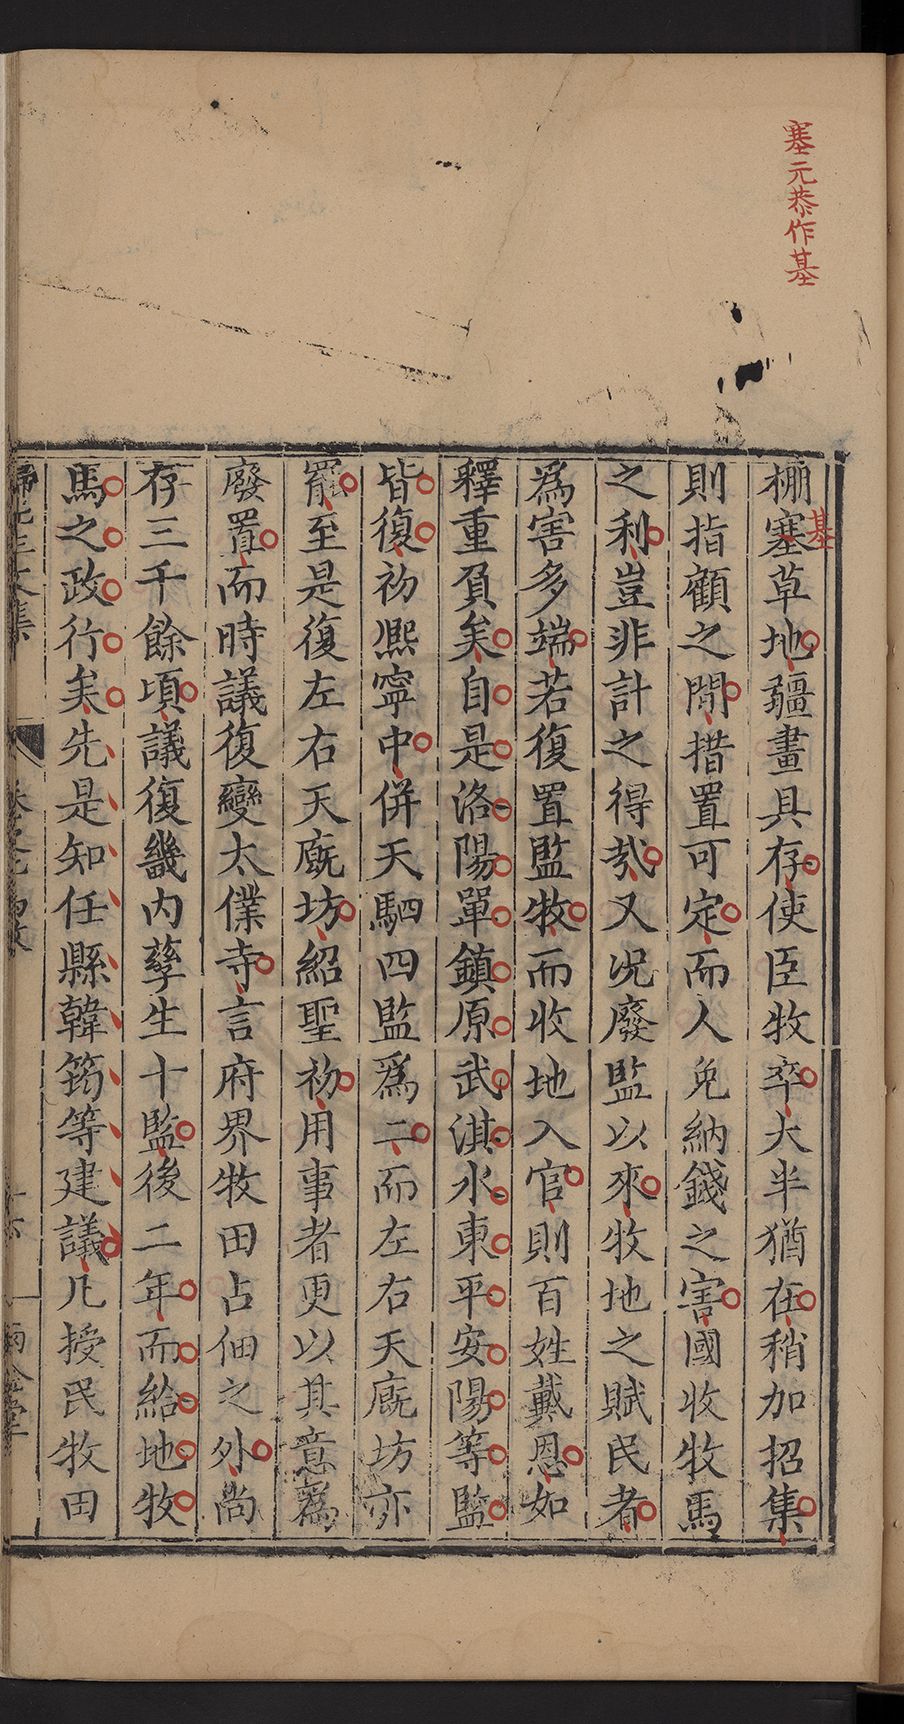 塞元恭作基
棚塞草地疆畫具存使臣牧卒大半猶在稍加招集
基
則指顧之間措置可定而人免納錢之害國收牧馬
之利豈非計之得哉又况廢監以來牧地之賦民者
爲害多端若復置監牧而收地入官則百姓戴恩如
釋重負矣自是洛陽單鎮原武淇水東平安陽等監
皆復初熙寧中併天駟四監爲二而左右天廐坊亦
罷至是復左右天廐坊紹聖初用事者更以其意爲
廢置而時議復變太僕寺言府界牧田占佃之外尚
存三千餘頃議復畿内孳生十監後二年而給地牧
馬之政行矣先是知任縣韓筠等建議凡授民牧田